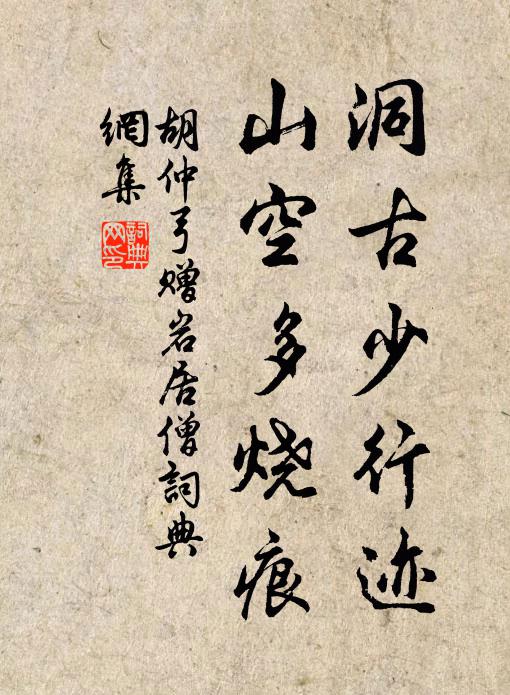 洞古少行迹
山空多烧痕
胡仲弓赠岩居僧詞典
網集
詞典网印